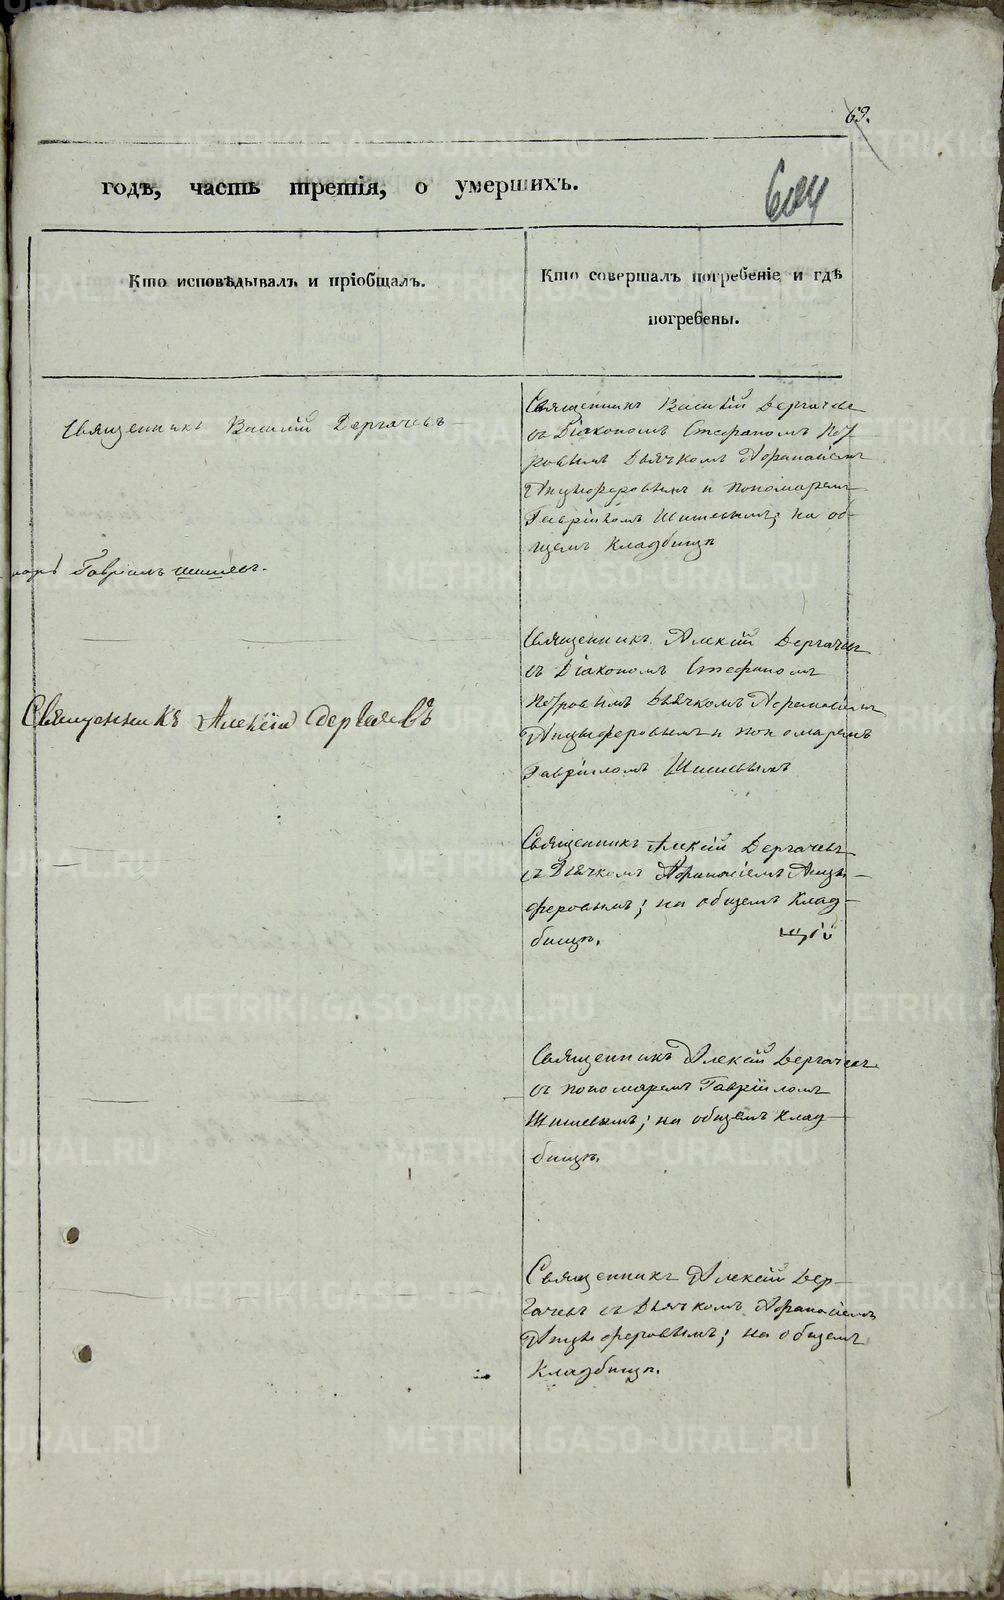 69.
годѣ, часть третія, о умершихъ.
604
Кто исповѣдывалъ и пріобщалъ.
Кто совершалъ погребеніе и гдѣ
погребены.
Священникъ Василій Дергачевъ
Священникъ Василій Дергачевъ
съ Діакономъ Стефаномъ Пет
ровымъ Дьячкомъ Афанасіемъ
и пономаремъ
Гавріиломъ Шишевымъ; на об
щемъ кладбищѣ
Гавріилъ Шишевъ.
Священникъ Алексій Дергачевъ
съ Діакономъ Стефаномъ
Петровымъ Дьячкомъ Афанасіемъ
и пономаремъ
Гавріиломъ Шишевымъ
Священникъ Алексій Дергачевъ
Священникъ Алексій Дергачевъ
съ Дьячкомъ Афанасіемъ Анцы
феровымъ; на общемъ клад
бищѣ.
щій
Священникъ Алексій Дергачевъ
съ пономаремъ Гавріиломъ
Шишевымъ; на общемъ клад
бищѣ.
Священникъ Алексій Дер
гачевъ съ Дьячкомъ Афанасіемъ
Анцыферовымъ; на общемъ
кладбищѣ.
METRIKI.GASO-URAL.RU